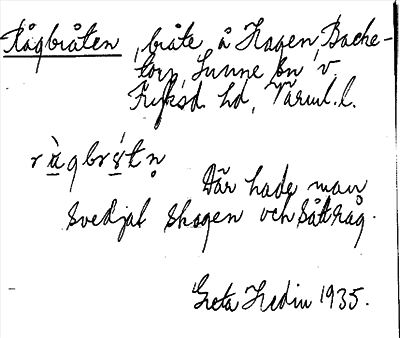 Rågbråten, bråte å Hagen, Backe-
torp, Sunne sn, v.
Fryksd. hd, Värml. l.
råg brǻtn̥
Där hade man
svedjat skogen och sått råg.
Greta Hedin 1935.